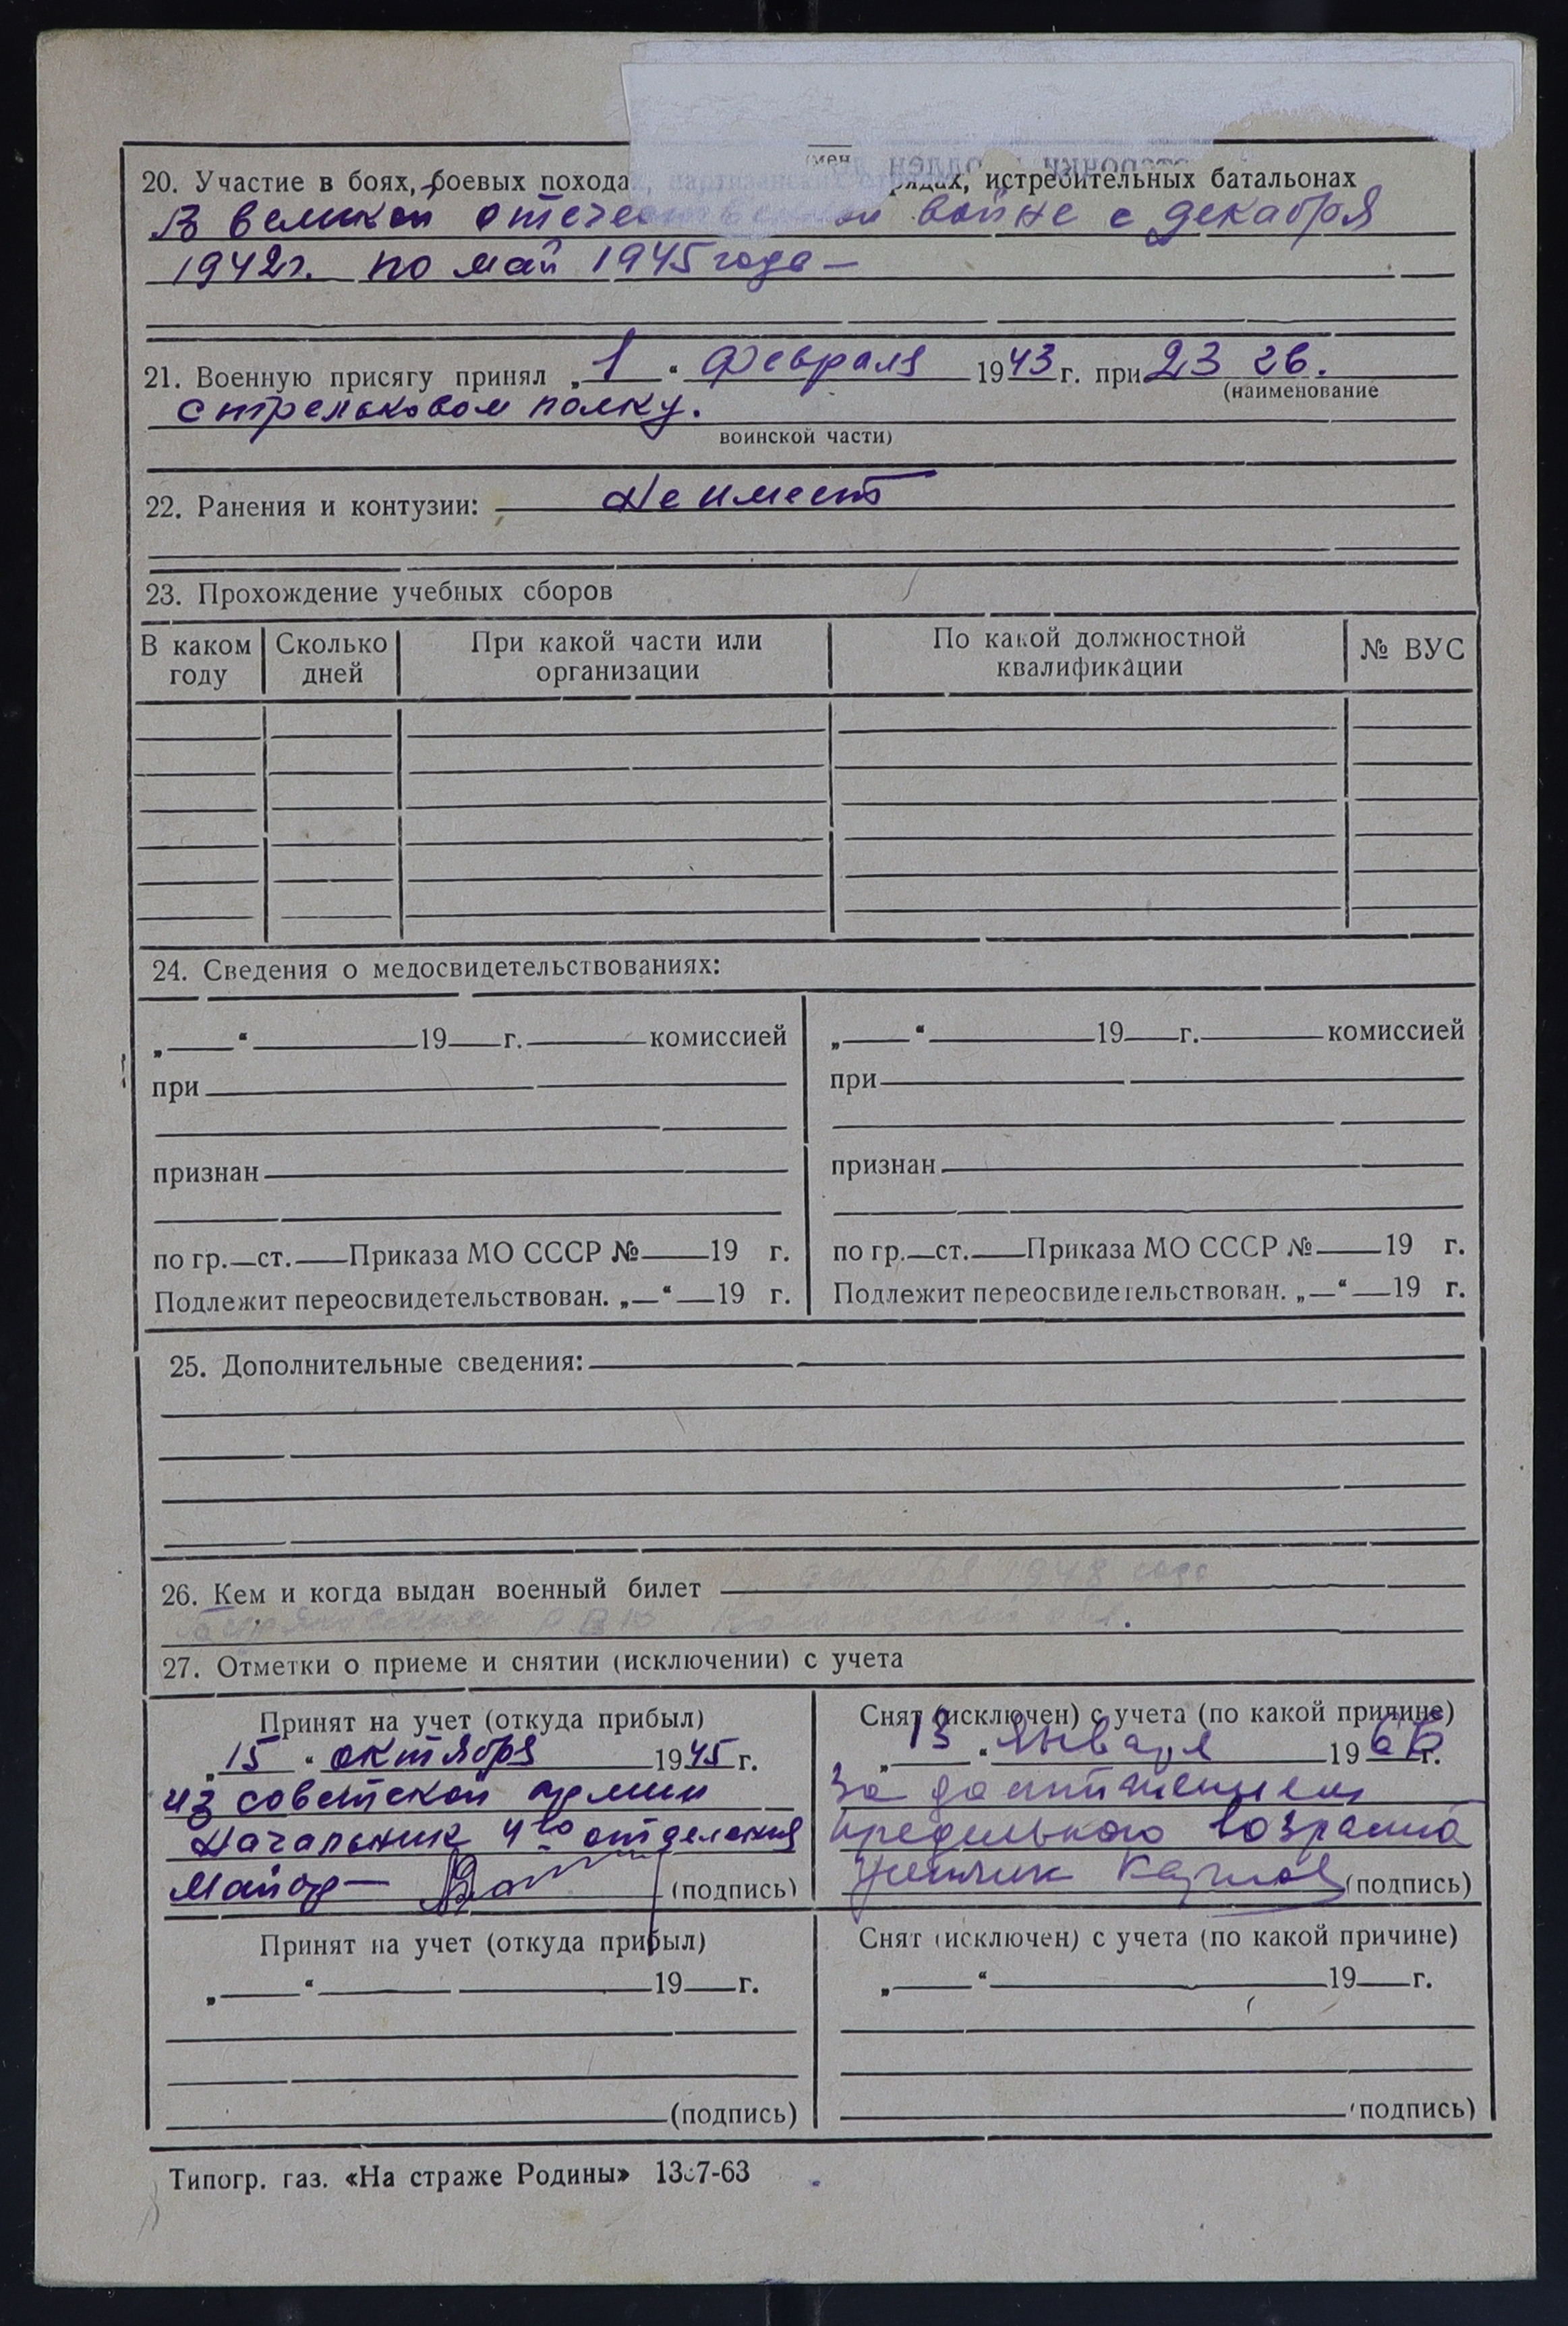 20. Участие в боях, боевых походах, партизанских рядах, истребительных батальонах
В великой отечественной войне с декабря
1942г. по май 1945 года —
21. Военную присягу принял „1“ февраля 1943 г. при 23 гв.
(наименование
стрелковом полку.
воинской части)
22. Ранения и контузии: Не имеет
23. Прохождение учебных сборов
В каком году Сколько дней При какой части или организации По какой должностной квалификации № ВУС
24. Сведения о медосвидетельствованиях:
„ “ 19 г. комиссией
при
признан
по гр. ст. Приказа МО СССР № 19 г.
Подлежит переосвидетельствован. „ “ 19 г.
„ “ 19 г. комиссией
при
признан
по гр. ст. Приказа МО СССР № 19 г.
Подлежит переосвидетельствован. „ “ 19 г.
25. Дополнительные сведения:
26. Кем и когда выдан военный билет 1948 года
27. Отметки о приеме и снятии (исключении) с учета
Принят на учет (откуда прибыл)
„15“ октября 1945 г.
из советской армии
Начальник 4го отделения
Майор — (подпись)
Снят (исключен) с учета (по какой причине)
„13“ января 1966 г.
за достижением
предельного возраста
(подпись)
Принят на учет (откуда прибыл)
„ “ 19 г.
(подпись)
Снят (исключен) с учета (по какой причине)
„ “ 19 г.
(подпись)
Типогр. газ. «На страже Родины»